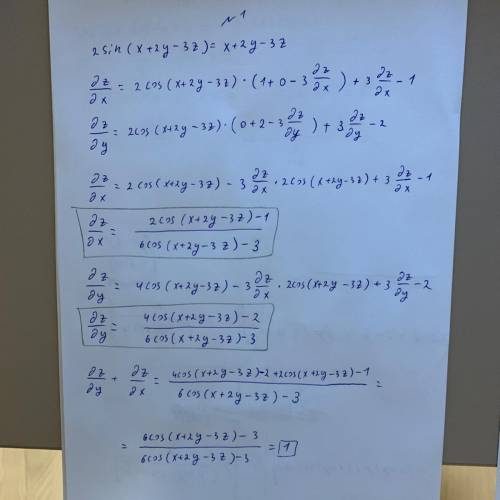 №1
2sin(x+2y-3z)=x+2y-3z
∂z/∂x = 2cos(x+2y-3z)·(1+0-3 ∂z/∂x) + 3 ∂z/∂x - 1
∂z/∂y = 2cos(x+2y-3z)·(0+2-3 ∂z/∂y) + 3 ∂z/∂y - 2
∂z/∂x = 2cos(x+2y-3z) - 3 ∂z/∂x · 2cos(x+2y-3z) + 3 ∂z/∂x - 1
∂z/∂x = (2cos(x+2y-3z)-1)/(6cos(x+2y-3z)-3)
∂z/∂y = 4cos(x+2y-3z) - 3 ∂z/∂x · 2cos(x+2y-3z) + 3 ∂z/∂y - 2
∂z/∂y = (4cos(x+2y-3z)-2)/(6cos(x+2y-3z)-3)
∂z/∂y + ∂z/∂x = (4cos(x+2y-3z)-2+2cos(x+2y-3z)-1)/(6cos(x+2y-3z)-3) =
= (6cos(x+2y-3z)-3)/(6cos(x+2y-3z)-3) = 1